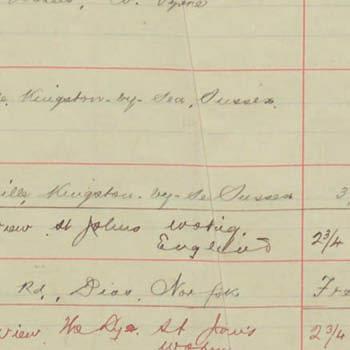 W. Byrne
Kingston-by-Sea, Sussex.
Kingston-by-Se Sussex 3
view St Johns Woking.
England 2 3/4
Rd., Diss, Norfolk Fre
view. St Jon's 2 3/4